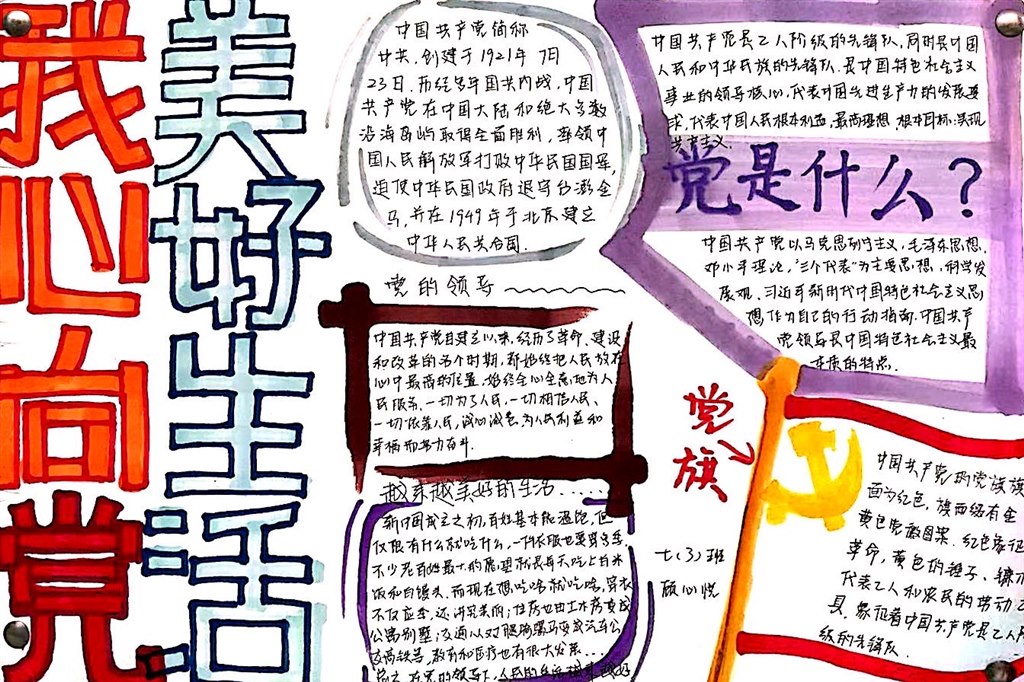 我心向党
美好生活
中国共产党简称
中共,创建于1921年7月
23日.历经多年国共内战,中国
共产党在中国大陆和绝大多数
沿海岛屿取得全面胜利,率领中
国人民解放军打败中华民国国军,
迫使中华民国政府退守台澎金
马,并在1949年于北京建立
中华人民共和国.
党的领导
中国共产党自建立以来,经历了革命、建设
和改革的各个时期,都始终把人民放在
心中最高的位置.始终全心全意地为人
民服务、一切为了人民,一切相信人民、
一切依靠人民,诚心诚意为人民利益和
幸福而努力奋斗.
越来越美好的生活......
新中国成立之初,百姓基本能温饱,但
仅限有什么就吃什么,一件衣服也要穿多年
不少老百姓最大的愿望就是每天吃上白米
饭和白馒头.而现在想吃啥就吃啥,穿衣
不仅应季,还讲究美丽;住房也由土木房变成
公寓别墅;交通从以腿脚骡马变成汽车公
交高铁等,教育和医疗也有很大发展...
总之,在党的领导下,人民的生活越来越好
中国共产党是工人阶级的先锋队,同时是中国
人民和中华民族的先锋队.是中国特色社会主义
事业的领导核心,代表中国先进生产力的发展要
求,代表中国人民根本利益,最高理想 根本目标:实现
共产主义.
党是什么?
中国共产党以马克思列宁主义,毛泽东思想,
邓小平理论,"三个代表"为主要思想,科学发
展观、习近平新时代中国特色社会主义思
想作为自己的行动指南.中国共产
党领导是中国特色社会主义最
本质的特点.
党旗
中国共产党的党旗旗
面为红色,旗面缀有金
黄色党徽图案.红色象征
革命,黄色的锤子、镰刀
代表工人和农民的劳动工
具,象征着中国共产党是工人阶
级的先锋队.
七(3)班
顾心悦